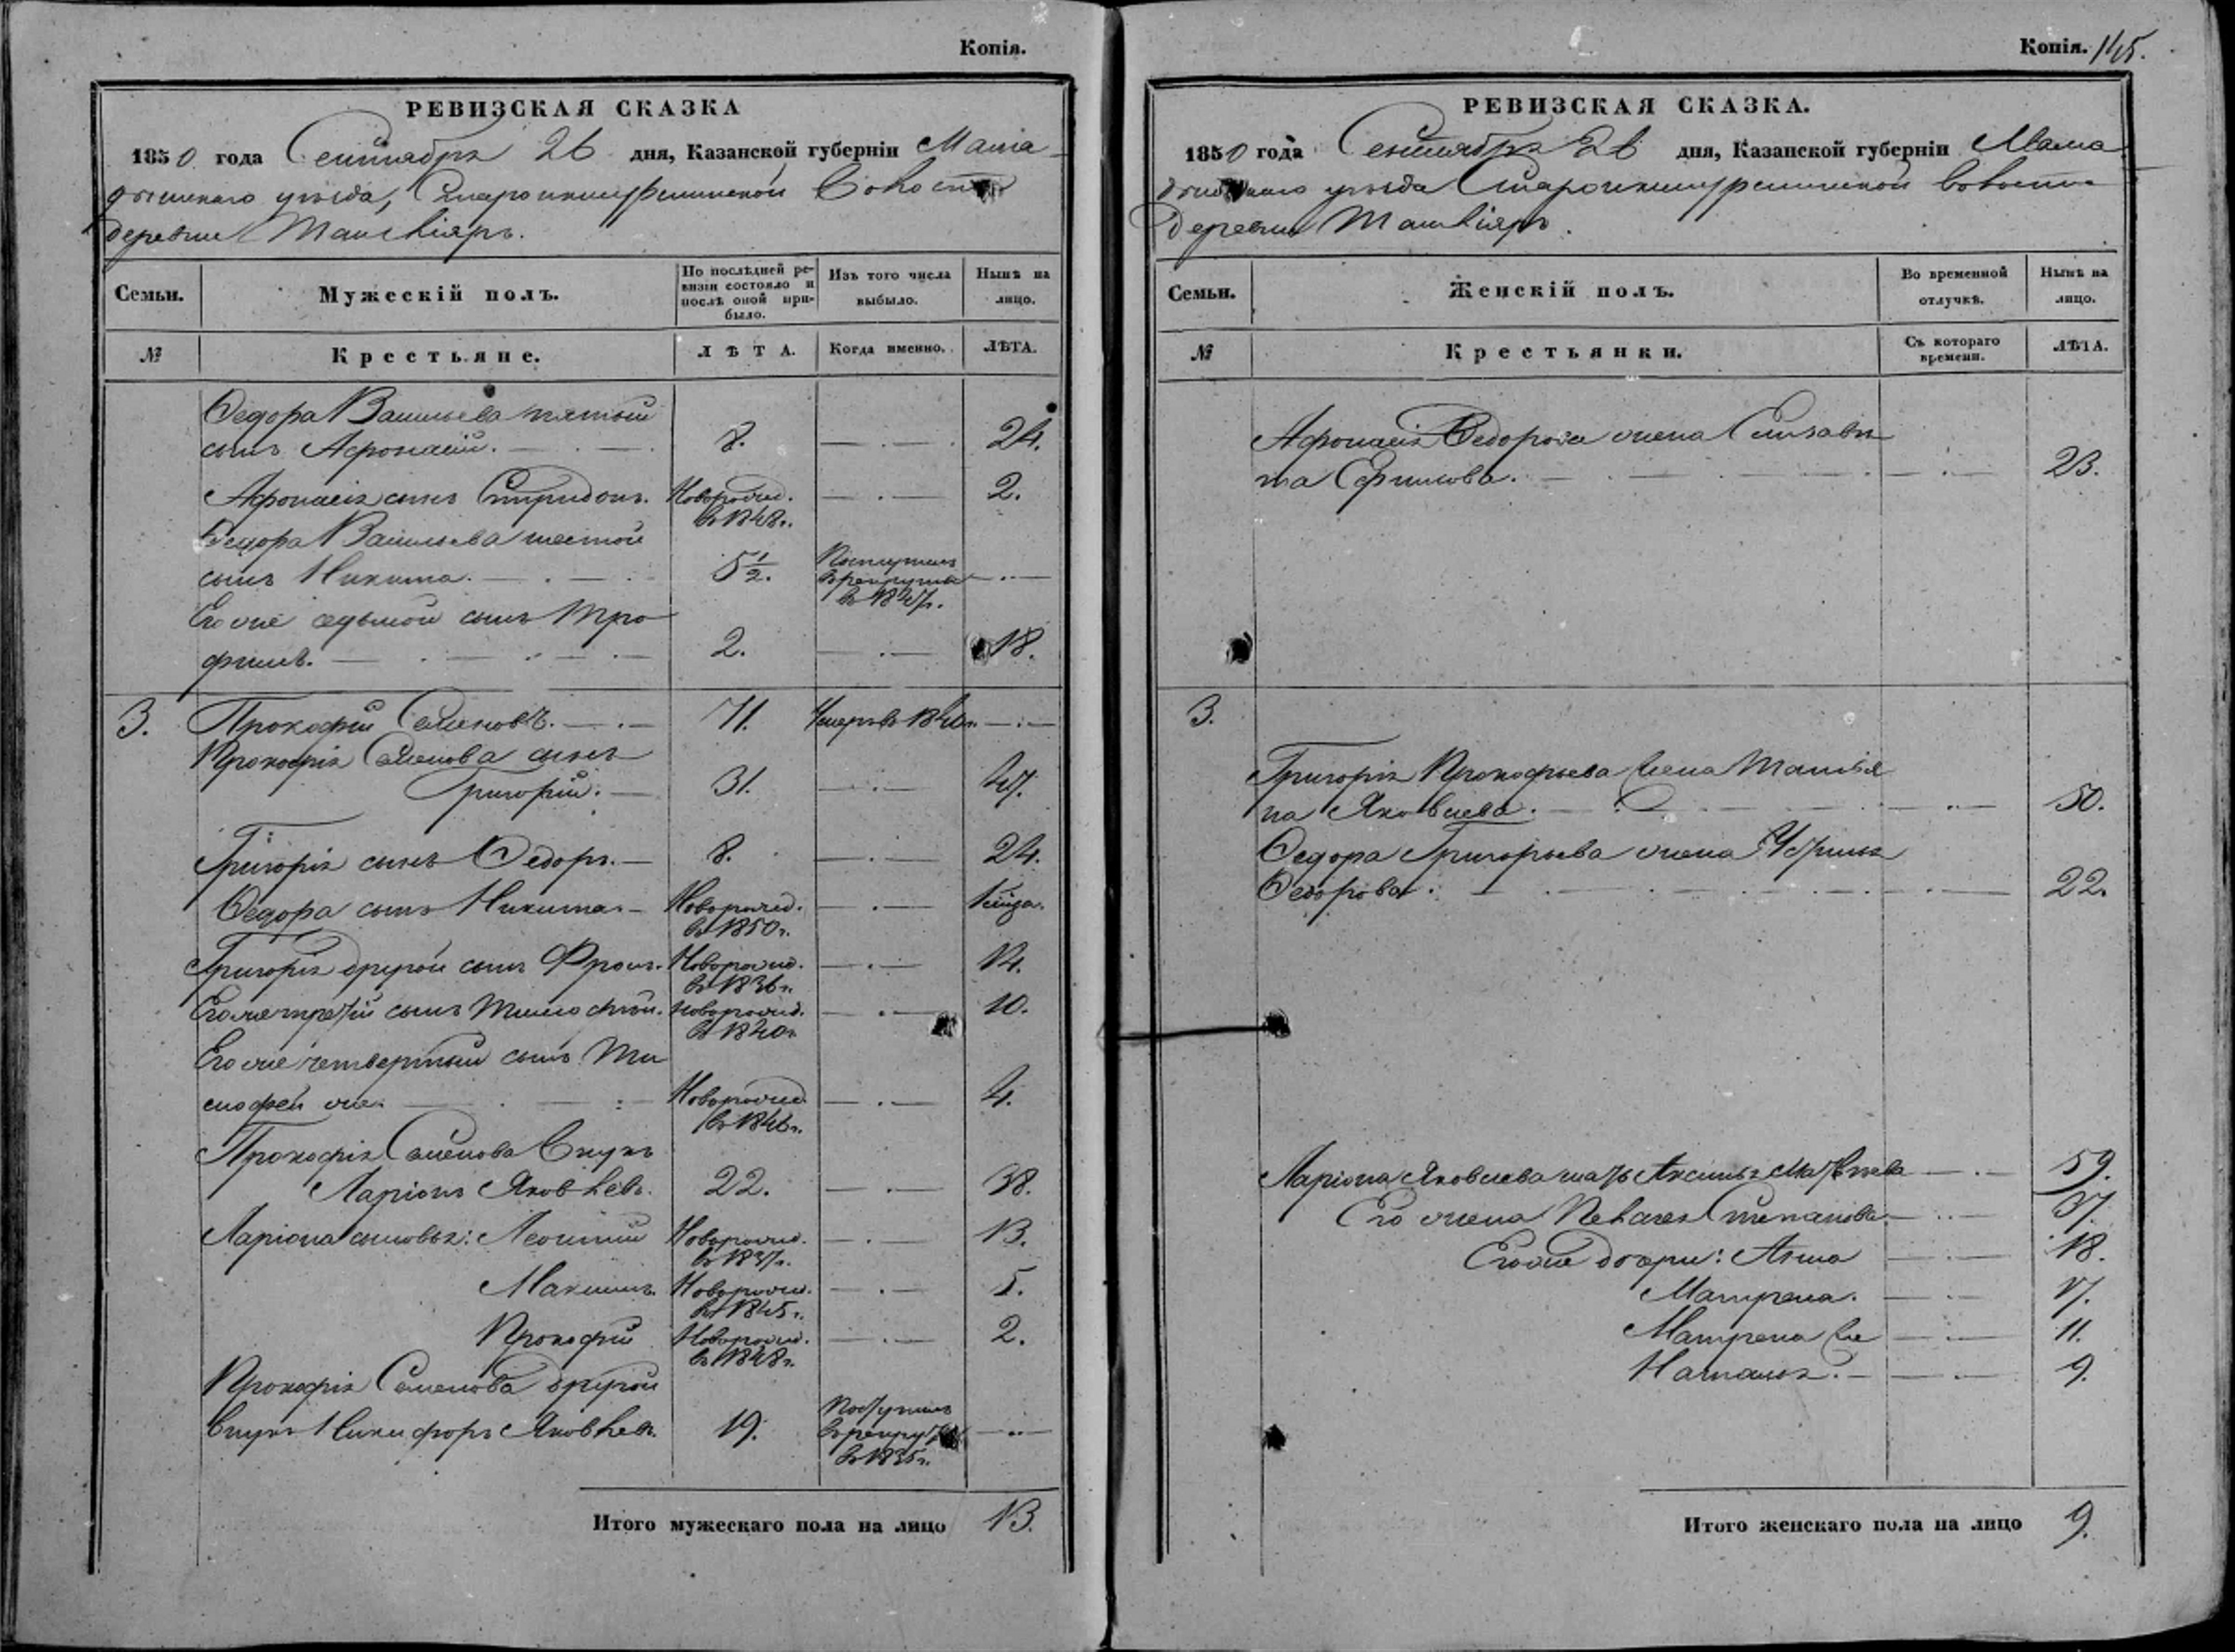 Копія.
РЕВИЗСКАЯ СКАЗКА
1850 года Сентября 26 дня, Казанской губерніи Мама
дышскаго уѣзда, Волости
деревни
Семьи.
Мужескій полъ.
По послѣдней ре-
визіи состояло и
послѣ оной при-
было.
Изъ того числа
выбыло.
Нынѣ на
лицо.
№
Крестьяне.
ЛѢТА.
Когда именно.
ЛѢТА.
Федора Васильева пятый
сынъ Афонасій. 8. 24.
Афонасія сынъ Спиридонъ. Новорожд. 2.
въ 1848г.
Федора Васильева шестой
сынъ Никита. 5½. Поступилъ
в рекруты
въ 1847г.
Егоже седьмой сынъ Тро
фимъ. 2. 18.
3. Прокофій Семеновъ. 71. Умеръ въ
Прокофія Семенова сынъ
Григорій. 31. 47.
Григорія сынъ Федоръ. 8. 24.
Федора сынъ Никита. Новорожд.
въ 1850г.
Григорія другой сынъ Фролъ. Новорожд. 14.
въ 1836г.
Егоже третій сынъ Тимофѣй. Новорожд. 10.
въ 1840г.
Егоже четвертый сынъ Ти
мофей же. Новорожд. 4.
въ 1846г.
Прокофія Семенова внукъ
Ларіонъ Яковлевъ. 22. 38.
Ларіона сыновья: Леонтій Новорожд. 13.
въ 1837г.
Максимъ. Новорожд. 5.
въ 1845г.
Прокофій Новорожд. 2.
въ 1848г.
Прокофія Семенова другой
внукъ Никифоръ Яковлевъ. 19. Поступилъ
в рекруты
въ 1835г.
Итого мужескаго пола на лицо 13.
Копія. 145.
РЕВИЗСКАЯ СКАЗКА.
1850 года Сентября 26 дня, Казанской губерніи Мама
дышскаго уѣзда волости
Деревни
Семьи.
Женскій полъ.
Во временной
отлучкѣ.
Нынѣ на
лицо.
№
Крестьянки.
Съ котораго
времени.
ЛѢТА.
Афонасія Федорова жена Елизаве
та Ефимова. 23.
3.
Григорія Прокофьева жена Татья
на Яковлева. 50.
Федора Григорьева жена
Федорова. 22.
Ларіона Яковлева мать Аксинья Матвѣева 59.
Его жена Пелагея Степанова. 37.
Егоже дочери: Анна 18.
Матрена. 17.
Матрена же 11.
Наталья. 9.
Итого женскаго пола на лицо 9.